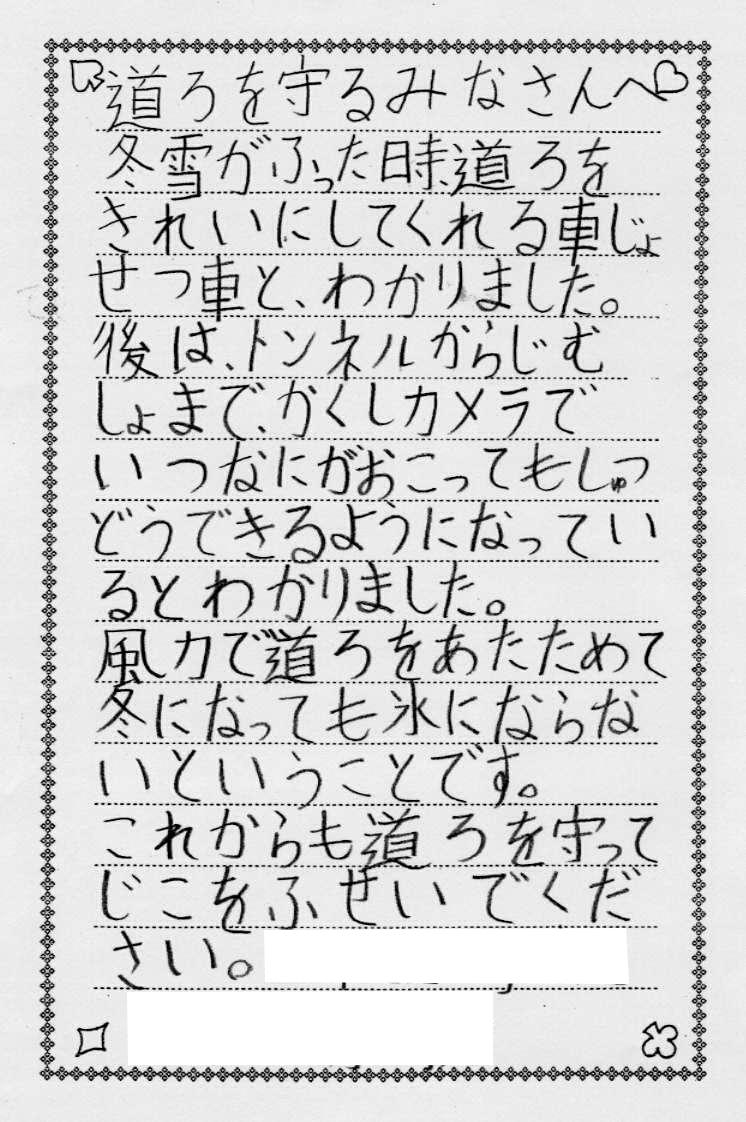 道ろを守るみなさんへ
冬雪がふった時、道ろを
きれいにしてくれる車じょ
せつ車と、わかりました。
後は、トンネルからじむ
しょまで、かくしカメラで
いつなにがおこってもしゅつ
どうできるようになってい
るとわかりました。
風力で道ろをあたためて
冬になっても氷にならな
いということです。
これからも道ろを守って
じこをふせいでくだ
さい。